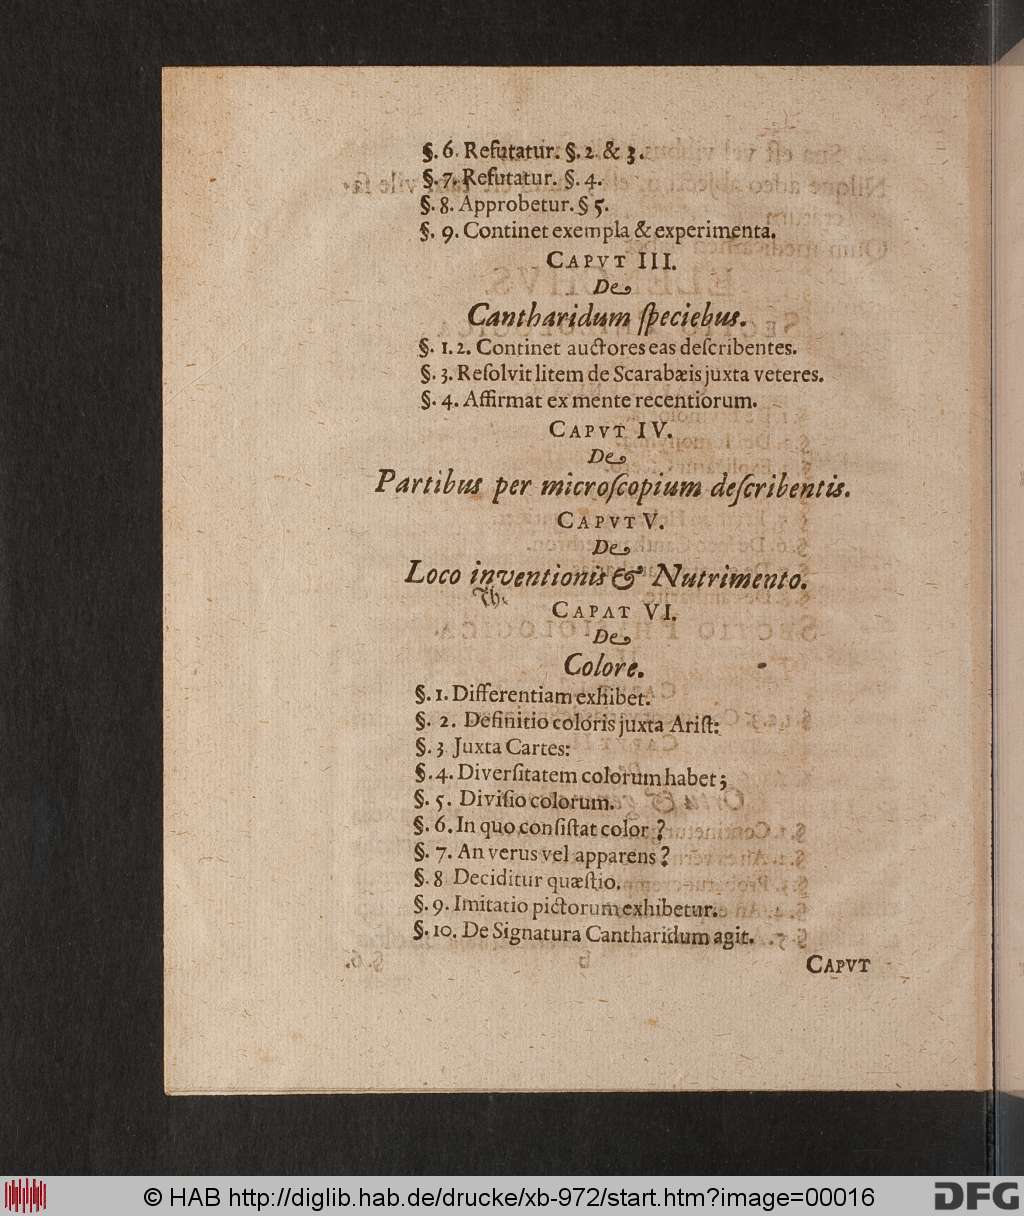 §. 6. Refutatur. §. 2 & 3.
§. 7. Refutatur. §. 4.
§. 8. Approbetur. § 5.
§. 9. Continet exempla & experimenta.
CAPVT III.
De
Cantharidum ſpeciebus.
§. 1. 2. Continet auctores eas deſcribentes.
§. 3. Reſolvit litem de Scarabæis juxta veteres.
§. 4. Affirmat ex mente recentiorum.
CAPVT IV.
De
Partibus per microſcopium deſcribentis.
CAPVT V.
De
Loco inventionis & Nutrimento.
CAPAT VI.
De
Colore.
§. 1. Differentiam exhibet.
§. 2. Definitio coloris juxta Ariſt:
§. 3 Juxta Cartes:
§. 4. Diverſitatem colorum habet;
§. 5. Diviſio colorum.
§. 6. In quo conſiſtat color?
§. 7. An verus vel apparens?
§. 8 Deciditur quæſtio.
§. 9. Imitatio pictorum exhibetur.
§. 10. De Signatura Cantharidum agit.
CAPVT
© HAB http://diglib.hab.de/drucke/xb-972/start.htm?image=00016
DFG